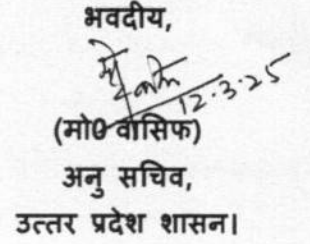 भवदीय,
12.3.25
(मो0 वासिफ)
अनु सचिव,
उत्तर प्रदेश शासन।